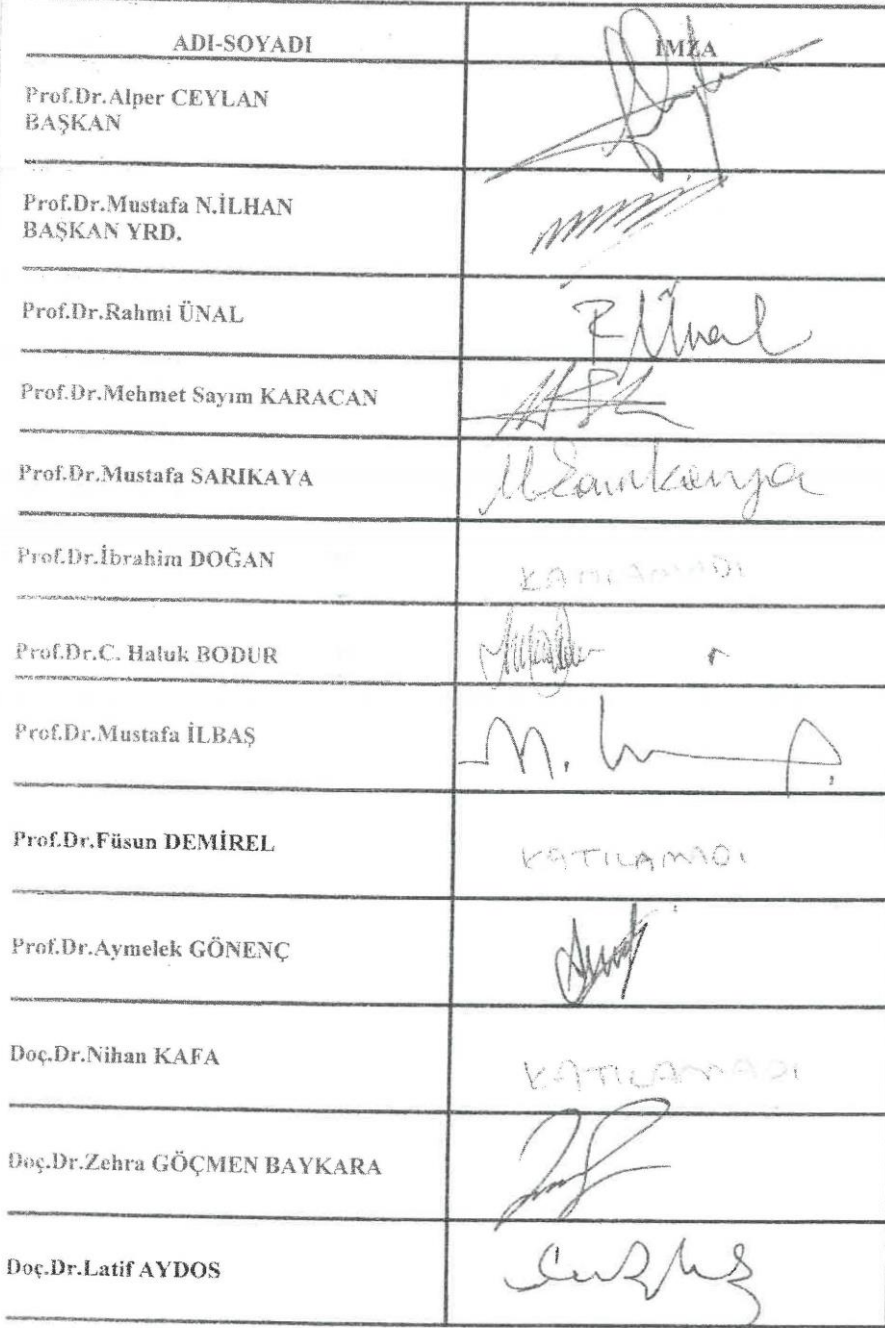 ADI-SOYADI İMZA
Prof.Dr.Alper CEYLAN
BAŞKAN
Prof.Dr.Mustafa N.İLHAN
BAŞKAN YRD.
Prof.Dr.Rahmi ÜNAL R Ünal
Prof.Dr.Mehmet Sayım KARACAN
Prof.Dr.Mustafa SARIKAYA M Sarıkaya
Prof.Dr.İbrahim DOĞAN KATILAMADI
Prof.Dr.C. Haluk BODUR
Prof.Dr.Mustafa İLBAŞ
Prof.Dr.Füsun DEMİREL KATILAMADI
Prof.Dr.Aymelek GÖNENÇ
Doç.Dr.Nihan KAFA KATILAMADI
Doç.Dr.Zehra GÖÇMEN BAYKARA
Doç.Dr.Latif AYDOS